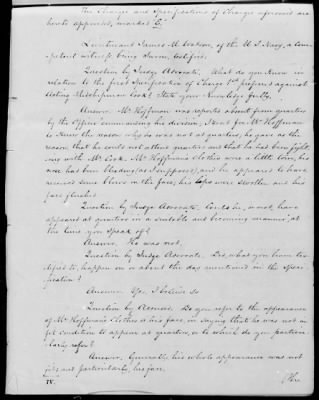 The Charge and Specifications of Charges aforesaid are
hereto appended, marked C.
Lieutenant James M. Watson, of the U.S. Navy, a com-
petent witness being sworn, testifies.
Question by Judge Advocate. What do you know in
relation to the first Specification of Charge 1st preferred against
Acting Midshipman Cook? State your knowledge fully.
Answer. Mr Hoffman was reported absent from quarters
by the Officer commanding his division; I sent for Mr Hoffman
to know the reason why he was not at quarters; he gave as the
reason that he could not attend quarters and that he had been fight-
ing with Mr Cook. Mr Hoffman's clothes were a little torn, his
nose had been bleeding (as I supposed), and he appeared to have
received some blows in the face; his lips were swollen and his
face flushed.
Question by Judge Advocate. Could he, or not, have
appeared at quarters in a suitable and becoming manner, at
the time you speak of?
Answer. He was not.
Question by Judge Advocate. Did, what you have tes-
tified to, happen on or about the day mentioned in the Speci-
fication?
Answer. Yes, I believe so
Question by Accused. Do you refer to the appearance
of Mr Hoffman's clothes or his face, in saying that he was not in a
fit condition to appear at quarters, or to which do you particu-
larly refer?
Answer. Generally, his whole appearance was not
fit; and particularly, his face.
IV.